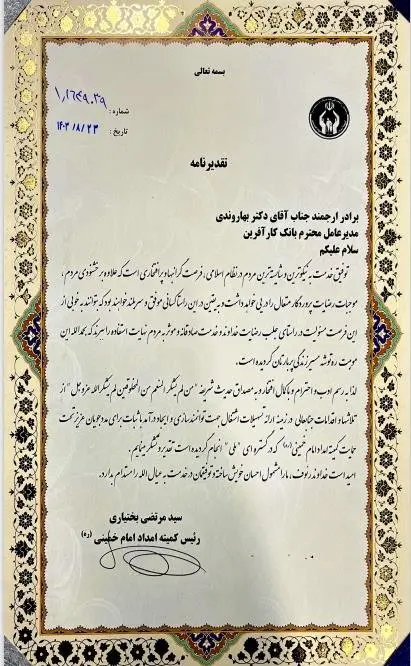 بسمه تعالی
شماره: ۱,۱۶۴۹۰۳۹
تاریخ: ۱۴۰۳/۸/۲۳
تقدیرنامه
برادر ارجمند جناب آقای دکتر بهاروندی
مدیرعامل محترم بانک کارآفرین
سلام علیکم
توفیق خدمت به نیکوترین و شایسته‌ترین مردم در نظام اسلامی، فرصت گرانبها و پر افتخاری است که علاوه بر خشنودی مردم،
موجبات رضایت پروردگار متعال را در پی خواهد داشت و به یقین در این راستا کسانی موفق و سربلند خواهند بود که توانسته به خوبی از
این فرصت مسئولیت در راستای جلب رضایت خداوند و خدمت صادقانه و موثر به مردم نهایت استفاده را ببرند که بحمدالله این
موهبت ره توشه مسیر زندگی پربارتان گردیده است.
لذا به رسم ادب و احترام و با کمال افتخار و به مصداق حدیث شریفه "من لم یشکر المنعم من المخلوقین لم یشکر الله عزوجل" از
تلاشها و اقدامات جنابعالی در زمینه ارائه تسهیلات اشتغال جهت توانمندسازی و ایجاد درآمد با ثبات برای مددجویان عزیز تحت
حمایت کمیته امداد امام خمینی (ره) که در گستره ای "ملی" انجام گردیده است تقدیر و تشکر مینمایم.
امید است خداوند رئوف، ما را مشمول احسان خویش ساخته و توفیقتان در خدمت به عیال الله را مستدام بدارد.
سید مرتضی بختیاری
رئیس کمیته امداد امام خمینی (ره)